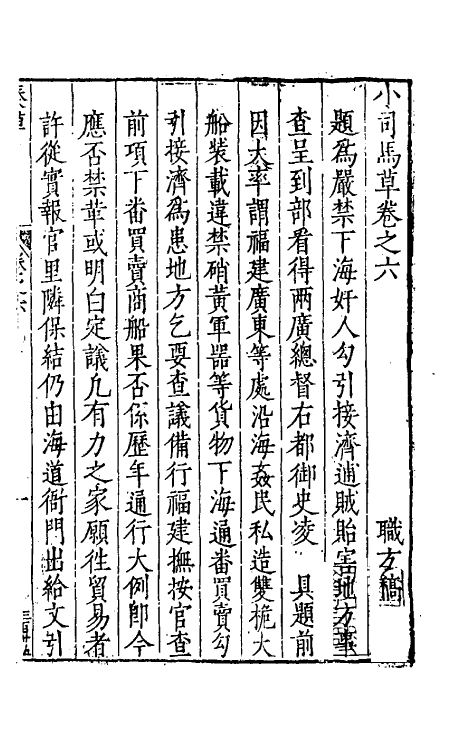 小司馬草卷之六
職方稿
題爲嚴禁下海奸人勾引接濟逋賊貽害地方事
查呈到部看得兩廣總督右都御史凌 具題前
因大率謂福建廣東等處沿海姦民私造雙桅大
船裝載違禁硝黃軍器等貨物下海通番買賣勾
引接濟爲患地方乞要查議備行福建撫按官查
前項下番買賣商船果否係歷年通行大例卽今
應否禁革或明白定議凡有力之家願徃貿易者
許從實報官里隣保結仍由海道衙門出給文引